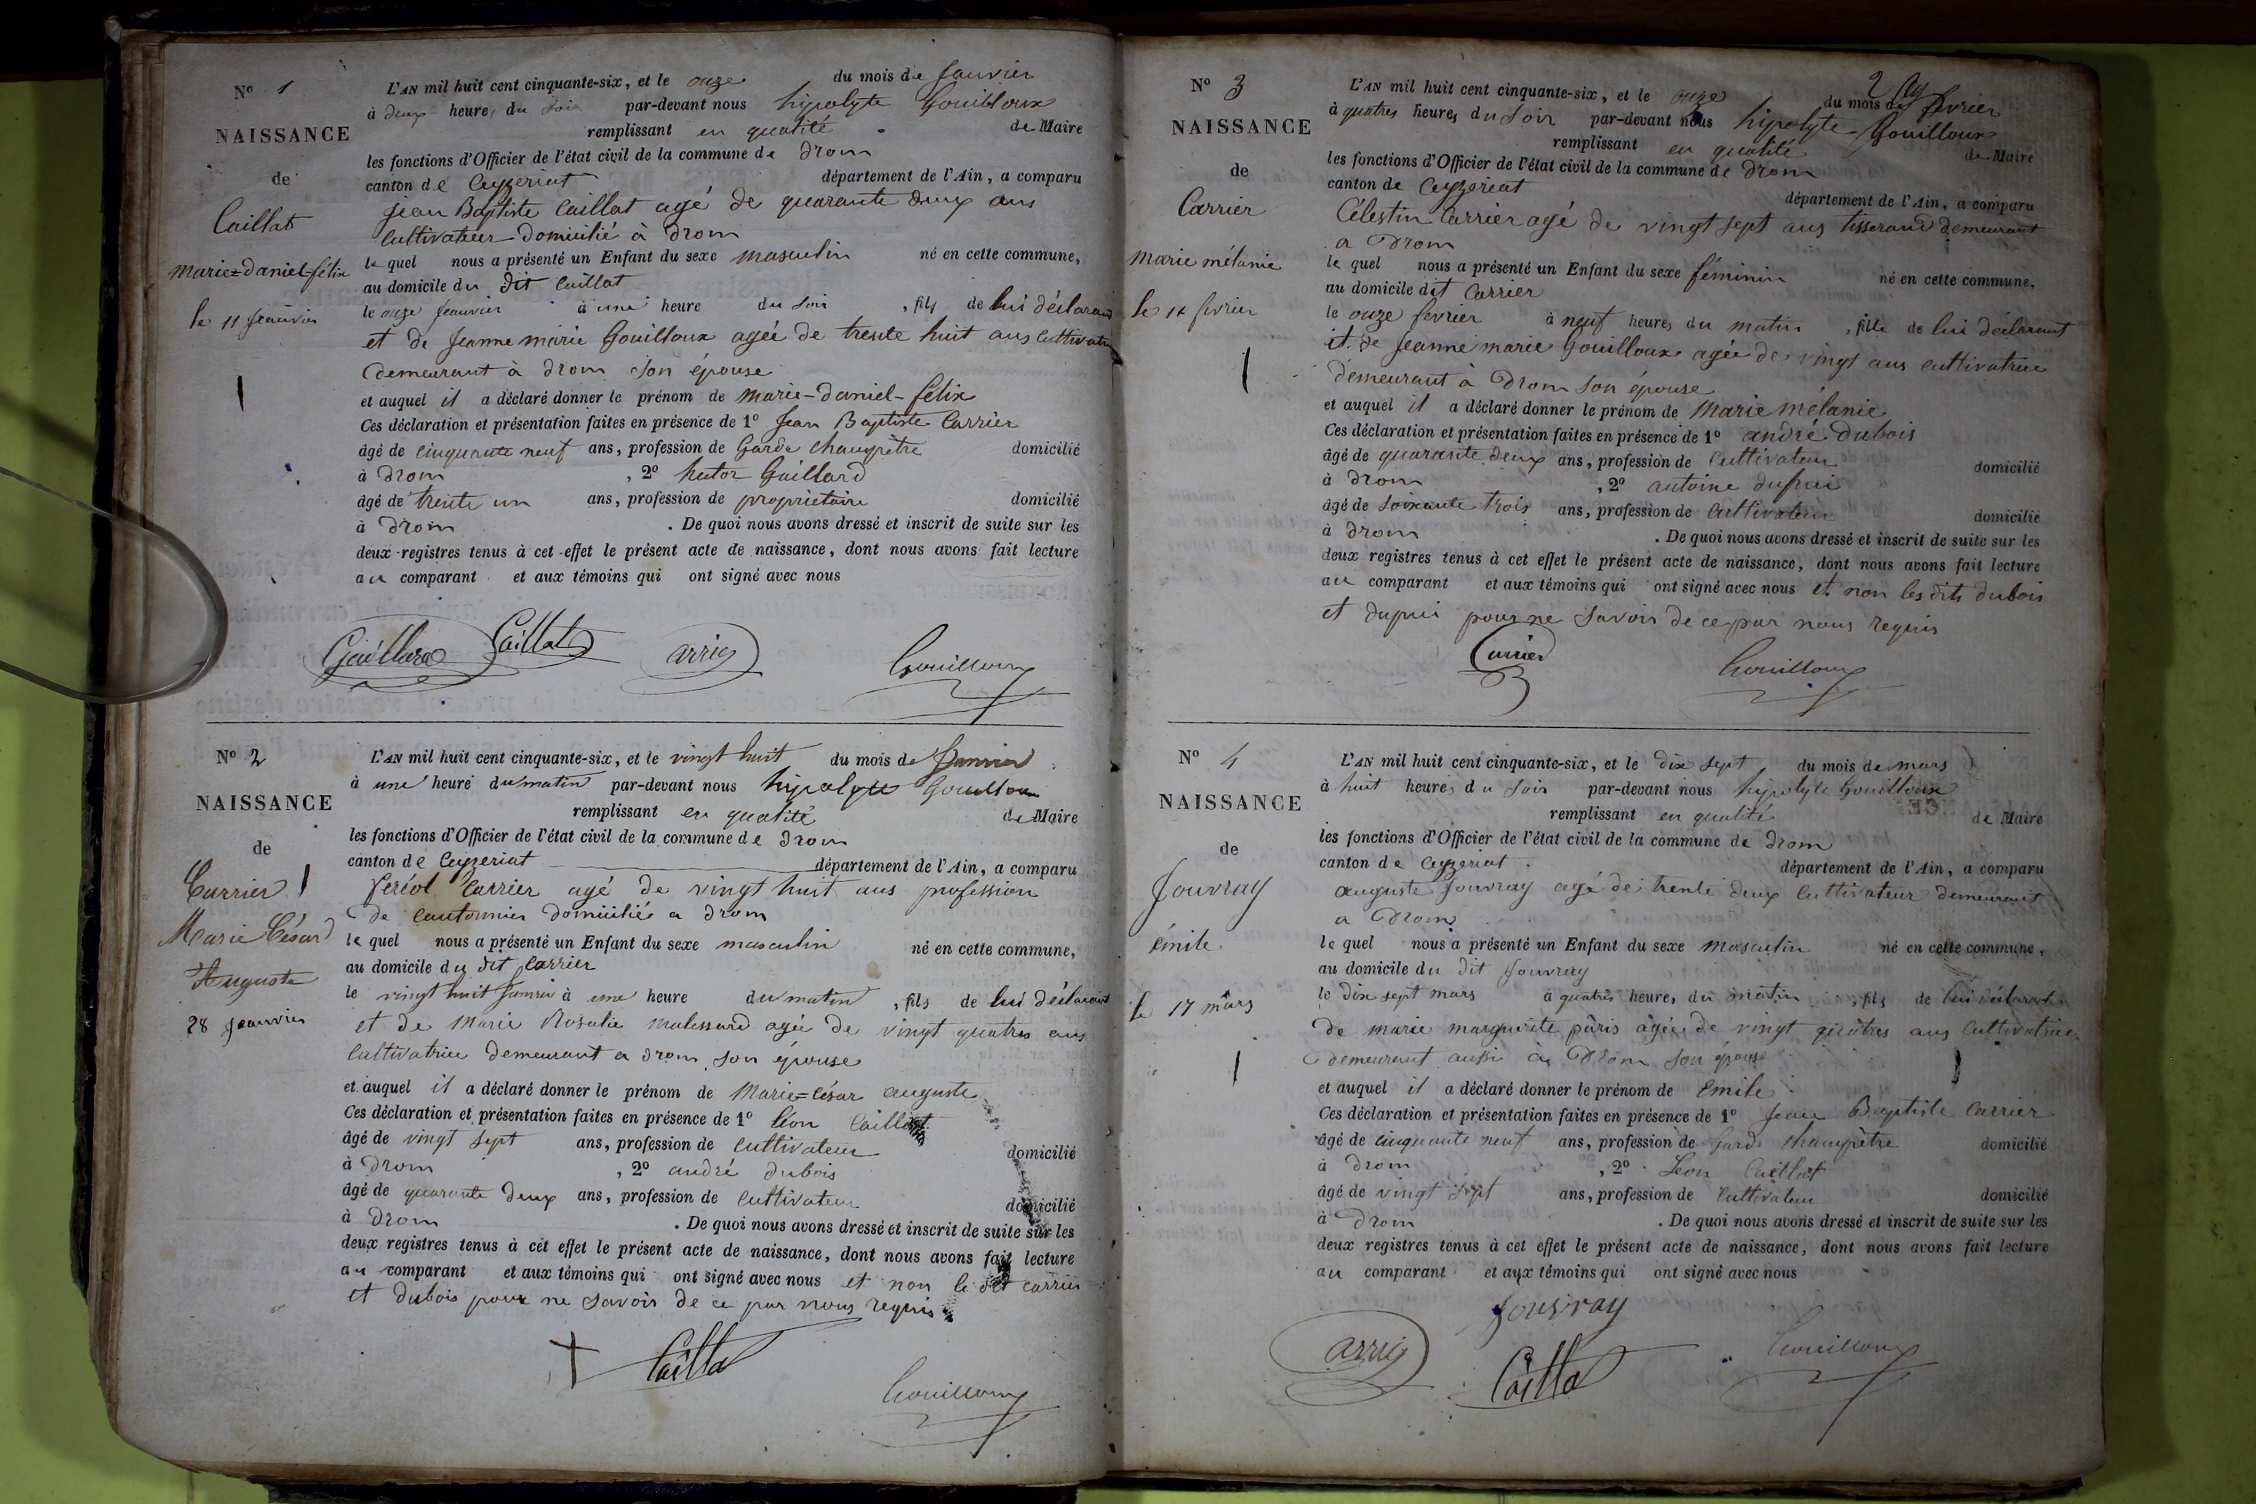 N° 1
NAISSANCE
de
Caillat
marie=daniel-félix
le 11 Jeanvier
L'AN mil huit cent cinquante-six, et le onze du mois de Janvier
à deux heures du soir par-devant nous hipolyte Gouilloux
remplissant en qualité de Maire
les fonctions d'Officier de l'état civil de la commune de Drom
canton de Ceyzeriat département de l'Ain, a comparu
jean Baptiste Caillat agé de quarante deux ans
Cultivateur domicilié à Drom
le quel nous a présenté un Enfant du sexe masculin né en cette commune,
au domicile du dit Caillat
le onze Jeanvier à une heure du soir, fils de lui déclarant
et de Jeanne marie Gouilloux agée de trente huit ans Cultivatrice
demeurant à Drom son épouse
et auquel il a déclaré donner le prénom de marie-daniel-félix
Ces déclaration et présentation faites en présence de 1° Jean Baptiste Carrier
âgé de cinquante neuf ans, profession de Garde champêtre domicilié
à Drom, 2° hector Gaillard
âgé de trente un ans, profession de propriétaire domicilié
à Drom. De quoi nous avons dressé et inscrit de suite sur les
deux registres tenus à cet effet le présent acte de naissance, dont nous avons fait lecture
au comparant et aux témoins qui ont signé avec nous
Gaillard Caillat Carrier Gouilloux
N° 2
NAISSANCE
de
Carrier
Marie César
Auguste
28 Jeanvier
L'AN mil huit cent cinquante-six, et le vingt huit du mois de Janvier
à une heure du matin par-devant nous hipolyte Gouilloux
remplissant en qualité de Maire
les fonctions d'Officier de l'état civil de la commune de Drom
canton de Ceyzeriat département de l'Ain, a comparu
feréol Carrier agé de vingt huit ans profession
de Cantonnier domicilié a Drom
le quel nous a présenté un Enfant du sexe masculin né en cette commune,
au domicile du dit Carrier
le vingt huit Janvier à une heure du matin, fils de lui déclarant
et de Marie Rosalie malessard agée de vingt quatres ans
Cultivatrice demeurant a Drom son épouse
et auquel il a déclaré donner le prénom de Marie=César auguste
Ces déclaration et présentation faites en présence de 1° Léon Caillat
âgé de vingt sept ans, profession de Cultivateur domicilié
à Drom, 2° andré dubois
âgé de quarante deux ans, profession de Cultivateur domicilié
à Drom. De quoi nous avons dressé et inscrit de suite sur les
deux registres tenus à cet effet le présent acte de naissance, dont nous avons fait lecture
au comparant et aux témoins qui ont signé avec nous et non le dit carrier
et dubois pour ne savoir de ce par nous requis
Caillat
Gouilloux
N° 3
NAISSANCE
de
Carrier
marie mélanie
le 11 fevrier
L'AN mil huit cent cinquante-six, et le onze du mois de fevrier
à quatres heures du soir par-devant nous hipolyte Gouilloux
remplissant en qualité de Maire
les fonctions d'Officier de l'état civil de la commune de Drom
canton de Ceyzeriat département de l'Ain, a comparu
Célestin Carrier agé de vingt sept ans tisserand demeurant
a Drom
le quel nous a présenté un Enfant du sexe féminin né en cette commune,
au domicile dit Carrier
le onze fevrier à neuf heures du matin, fille de lui déclarant
et de Jeanne marie Gouilloux agée de vingt ans cultivatrice
demeurant à Drom son épouse
et auquel il a déclaré donner le prénom de Marie mélanie
Ces déclaration et présentation faites en présence de 1° andré dubois
âgé de quarante deux ans, profession de Cultivateur domicilié
à Drom, 2° antoine dupui
âgé de soixante trois ans, profession de Cultivateur domicilié
à Drom. De quoi nous avons dressé et inscrit de suite sur les
deux registres tenus à cet effet le présent acte de naissance, dont nous avons fait lecture
au comparant et aux témoins qui ont signé avec nous et non les dits dubois
et dupui pour ne savoir de ce par nous requis
Carrier Gouilloux
N° 4
NAISSANCE
de
Jouvray
émile
le 17 mars
L'AN mil huit cent cinquante-six, et le dix sept du mois de mars
à huit heures du soir par-devant nous hipolyte Gouilloux
remplissant en qualité de Maire
les fonctions d'Officier de l'état civil de la commune de Drom
canton de Ceyzeriat. département de l'Ain, a comparu
auguste Jouvray agé de trente deux Cultivateur demeurant
a Drom
le quel nous a présenté un Enfant du sexe masculin né en cette commune,
au domicile du dit Jouvray
le dix sept mars à quatres heures du matin, fils de lui déclarant
de marie marguerite pàris àgée de vingt quatres ans Cultivatrice
demeurant aussi à Drom son épouse
et auquel il a déclaré donner le prénom de Emile
Ces déclaration et présentation faites en présence de 1° Jean Baptiste Carrier
âgé de cinquante neuf ans, profession de garde champêtre domicilié
à Drom, 2° Leon Caillat
âgé de vingt sept ans, profession de Cultivateur domicilié
à Drom. De quoi nous avons dressé et inscrit de suite sur les
deux registres tenus à cet effet le présent acte de naissance, dont nous avons fait lecture
au comparant et aux témoins qui ont signé avec nous
Jouvray
Carrier Caillat Gouilloux